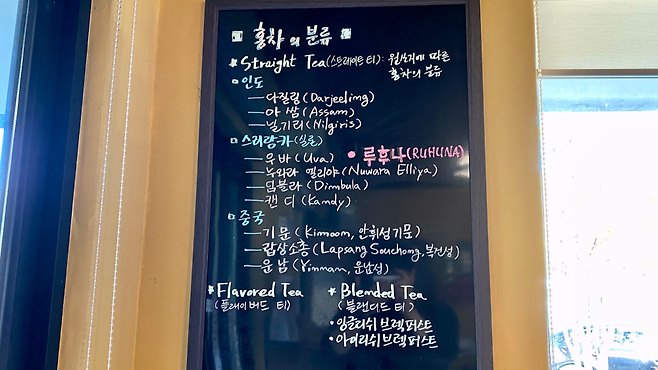 홍차의 분류
* Straight Tea(스트레이트 티): 원산지에 따른
홍차의 분류
인도
— 다질링(Darjeeling)
— 아쌈(Assam)
— 닐기리(Nilgiris)
스리랑카(실론)
— 우바(Uva) • 루후나(RUHUNA)
— 누와라 엘리야(Nuwara Elliya)
— 딤불라(Dimbula)
— 캔디(Kandy)
중국
— 기문(Kimoom, 안휘성 기문)
— 랍상소총(Lapsang Souchong, 복건성)
— 운남(Yinmam, 운남성)
* Flavored Tea * Blended Tea
(플레이버드 티) (블랜디드 티)
• 잉글리쉬 브렉퍼스트
• 아이리쉬 브렉퍼스트